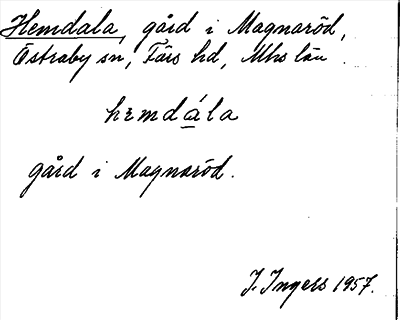 Hemdala, gård i Magnaröd,
Östraby sn, Färs hd, Mhs län
hemdála
gård i Magnaröd.
I. Ingers 1957.